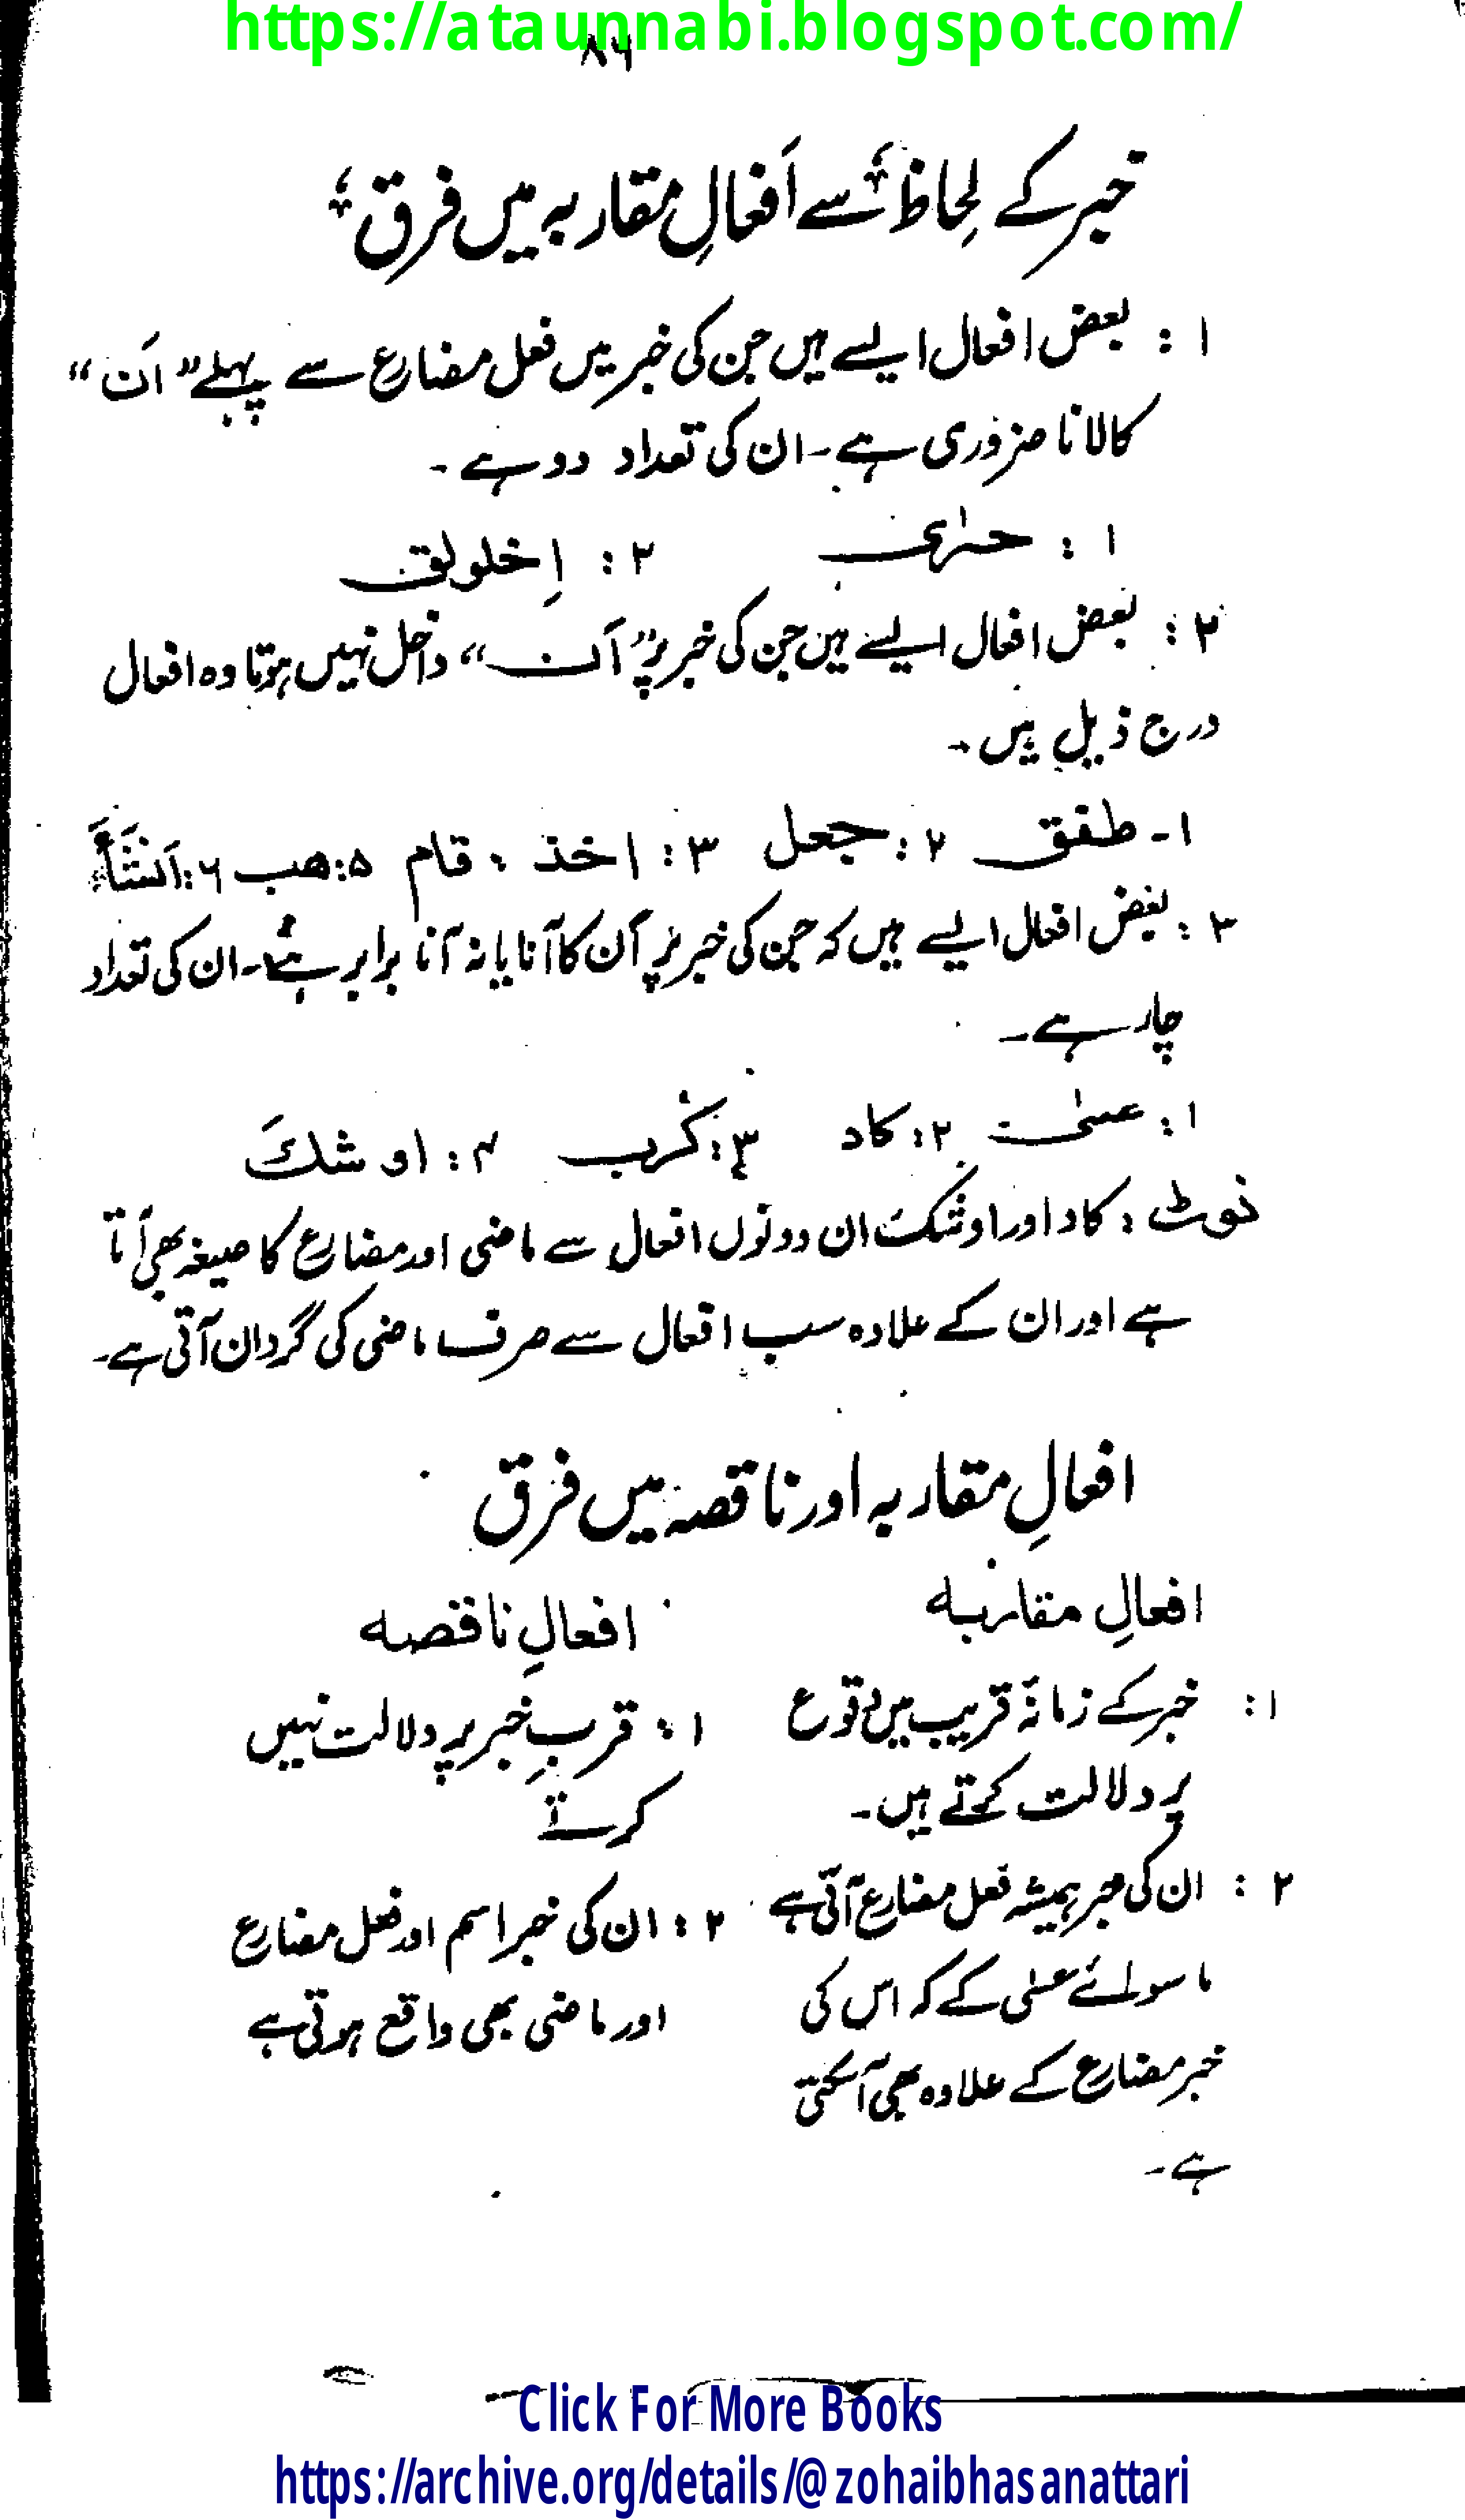 https://ataunnabi.blogspot.com/
۸۶
خبر کے لِحاظ سے اَفعالِ مقاربہ میں فرق
۱ : بعض افعال ایسے ہیں جن کی خبر میں فعل مضارع سے پہلے ”اَن“
کالانا ضروری ہے۔ ان کی تعداد دو ہے۔
۱ : حرٰی ۲ : اِخلولق
۲ : بعض افعال ایسے ہیں جن کی خبر پر ”اَن“ داخل نہیں ہوتا وہ افعال
درج ذیل ہیں۔
۱۔ طفق ۲ : جعل ۳ : اخذ ، قام ۵ : ھب ۶ : اَنشَأَ
۳ : بعض افعال ایسے ہیں کہ جن کی خبر پر اَن کا آنا یا نہ آنا برابر ہے۔ ان کی تعداد
چار ہے۔
۱ : عسٰی ۲ : کاد ۳ : کرب ۴ : اوشكَ
نوٹ : کاد اور اوشکَ ان دونوں افعال سے ماضی اور مضارع کا صیغہ بھی آتا
ہے اور ان کے علاوہ سب افعال سے صرف ماضی کی گردان آتی ہے۔
افعالِ مقاربہ اور ناقصہ میں فرق
افعالِ مقاربہ افعالِ ناقصہ
۱ : خبر کے زمانہ قریب میں وقوع
پر دلالت کرتے ہیں۔
۲ : ان کی خبر ہمیشہ فعل مضارع آتی ہے
ماسوائے عسٰی کے کہ اس کی
خبر مضارع کے علاوہ بھی آسکتی
ہے۔
۱ : قربِ خبر پر دلالت نہیں
کرتے
۲ : ان کی خبر اسم اور فعل مضارع
اور ماضی بھی واقع ہوتی ہے
Click For More Books
https://archive.org/details/@zohaibhasanattari